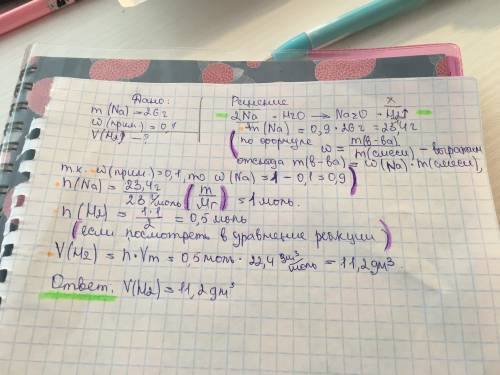 Дано:
m(Na)=26г
w(прим.)=0,1
V(H₂)-?
Решение
x
2Na + H₂O → Na₂O + H₂↑
m(Na) = 0,9 · 26г = 23,4г
(по формуле w = m(в-ва)/m(смеси) - выражаем
отсюда m(в-ва) = w(Na)·m(смеси),
т.к. w(прим.)=0,1, то w(Na) = 1 - 0,1 = 0,9)
n(Na) = 23,4г/23 г/моль (m/Mr) = 1 моль.
n(H₂) = 1·1/2 = 0,5 моль
(если посмотреть в уравнение реакции)
V(H₂) = n·Vm = 0,5 моль · 22,4 дм³/моль = 11,2 дм³.
Ответ: V(H₂) = 11,2 дм³